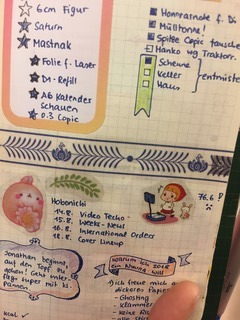 6cm Figur
Saturn
Mastnak
Folie f. Laser
DM-Refill
A6 Kalender
schauen
0.3 Copic
Honorarnote f. Di
Mülltonne!
Spitze Copic tausche
Hanko wg Traktor.
Scheune
Keller
Haus
entmiste
Hobonichi
14.8. Video Techo
15.8. Weeks-Neu!
16.8. International Orders
18.8. Cover Lineup
76.6
Jonathan beginnt,
auf den Topf zu
gehen! Geht
super mit
Warum ich 2018
ein
will
ich freue mich a
dickeres Papier
- Ghosting
- Klammer
kcal ✓